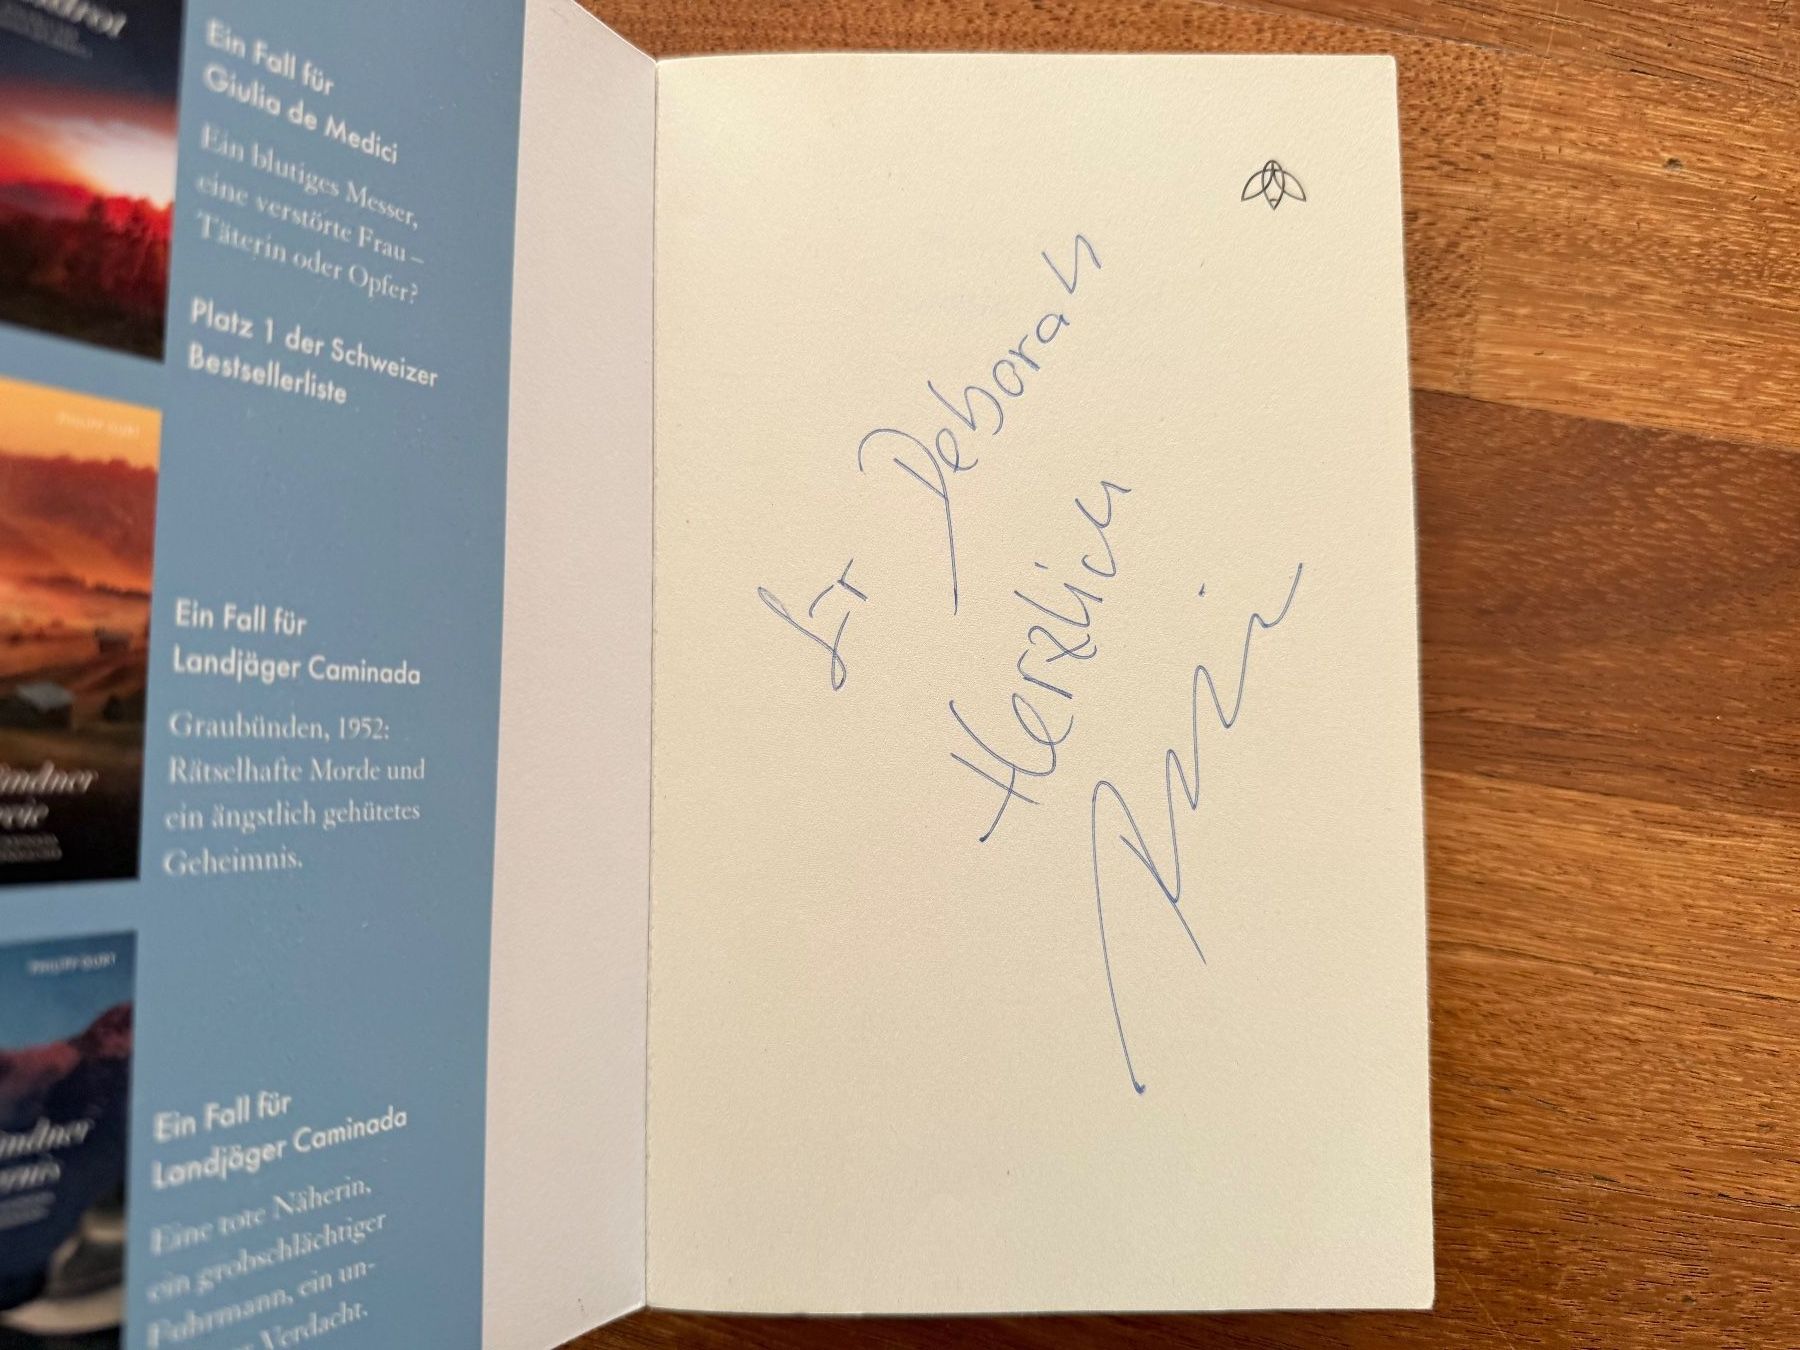 Ein Fall für
Giulia de Medici
Ein blutiges Messer,
eine verstörte Frau –
Täterin oder Opfer?
Platz 1 der Schweizer
Bestsellerliste
PHILIPP GURT
Ein Fall für
Landjäger Caminada
Graubünden, 1952:
Rätselhafte Morde und
ein ängstlich gehütetes
Geheimnis.
PHILIPP GURT
Ein Fall für
Landjäger Caminada
Eine tote Näherin,
ein grobschlächtiger
Fuhrmann, ein un-
Verdacht.
für Deborah
Herzlich